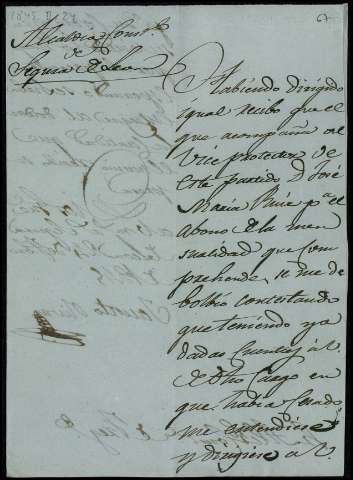 Alcaldia Const.l
de
Segura de Leon
Habiendo dirigido
igual recibo que el
que acompaña al
Vice protector de
este partido D. José
Maria Ruiz p.a el
abono de la men
sualidad que com
prehende, se me de
bolbio contestando
que teniendo ya
dadas Cuentas á V.
de dho Cargo en
que habia Cesado
me entendiese
y dirigiese á V.